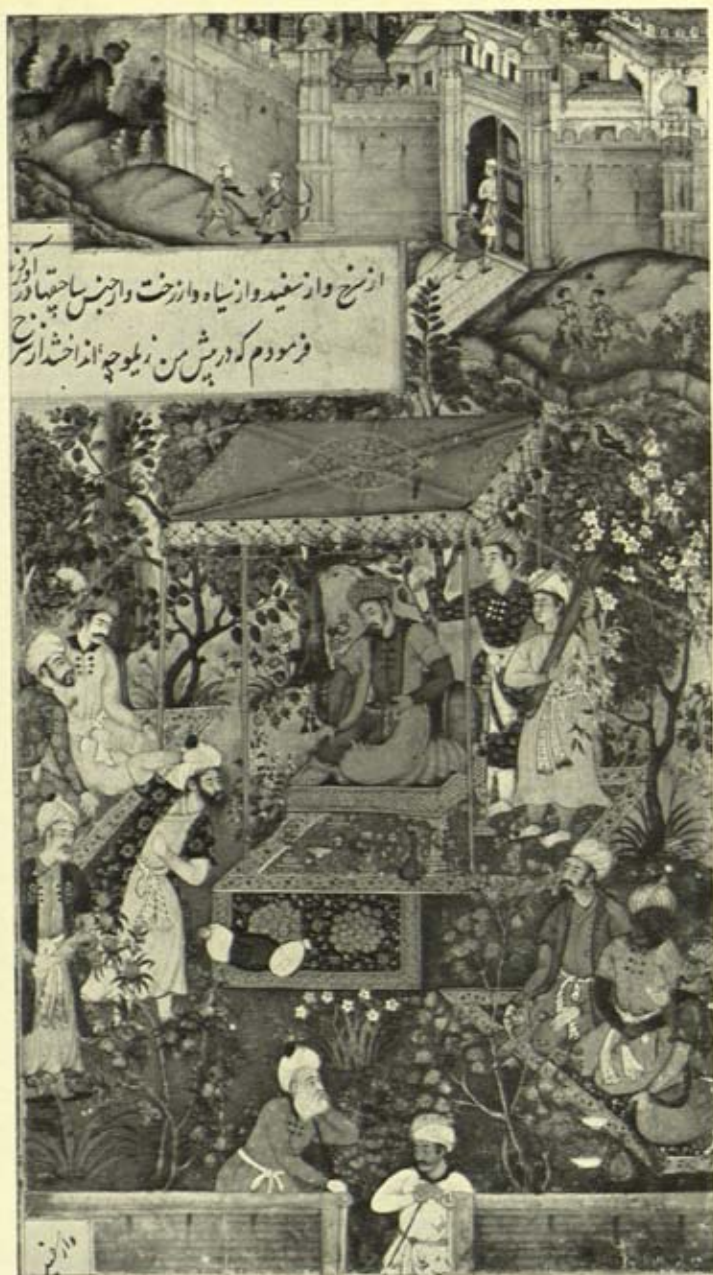 از سرخ و از سفید و از سیاه و از رخت و از جنس ساچقها
فرمودم که در پیش من زیلوچه انداختند از سرخ
واز